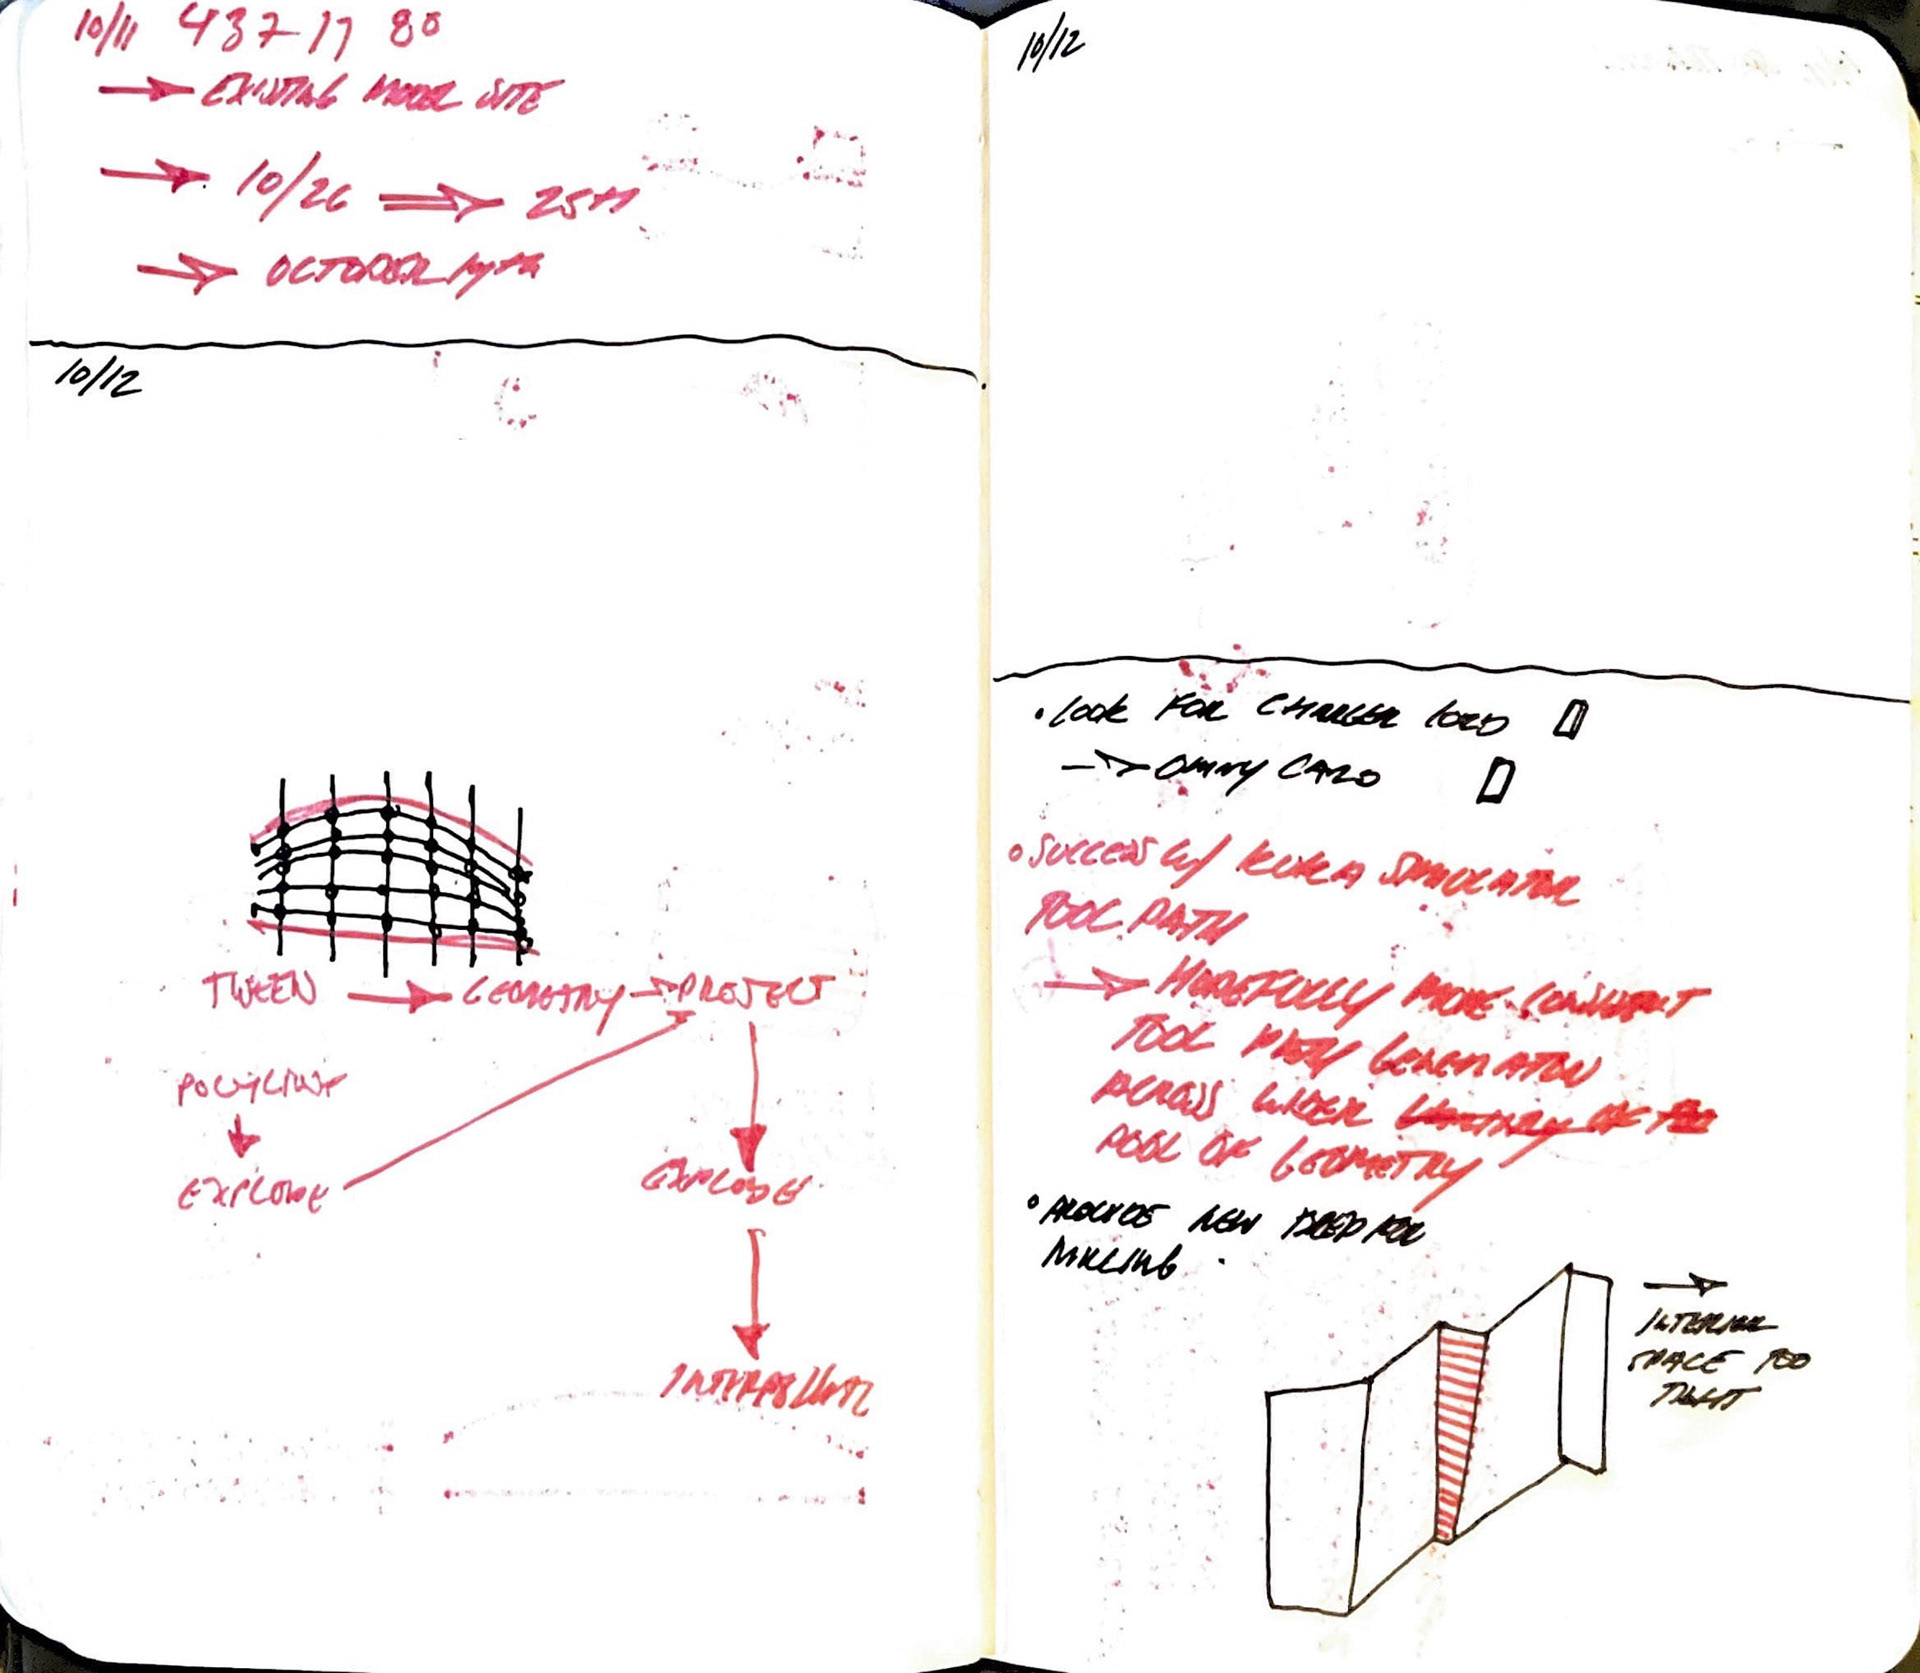 10/11 437-17 80
→ EXISTING MODEL SITE
→ 10/26 ⇒ 25TH
→ OCTOBER
10/12
TWEEN → GEOMETRY → PROJECT
POLYLINE
EXPLODE
EXPLODE
INTERPOLATE
10/12
• LOOK FOR CHARGER CORD
→ OMNY CARD
• SUCCESS W/ KUKA SIMULATOR
TOOL PATH
→ HOPEFULLY MORE CONSISTENT
TOOL PATH GENERATION
ACROSS WIDER
POOL OF GEOMETRY
• PROVIDE NEW BED FOR
MILLING
→
INTERIOR
SPACE TOO
TIGHT